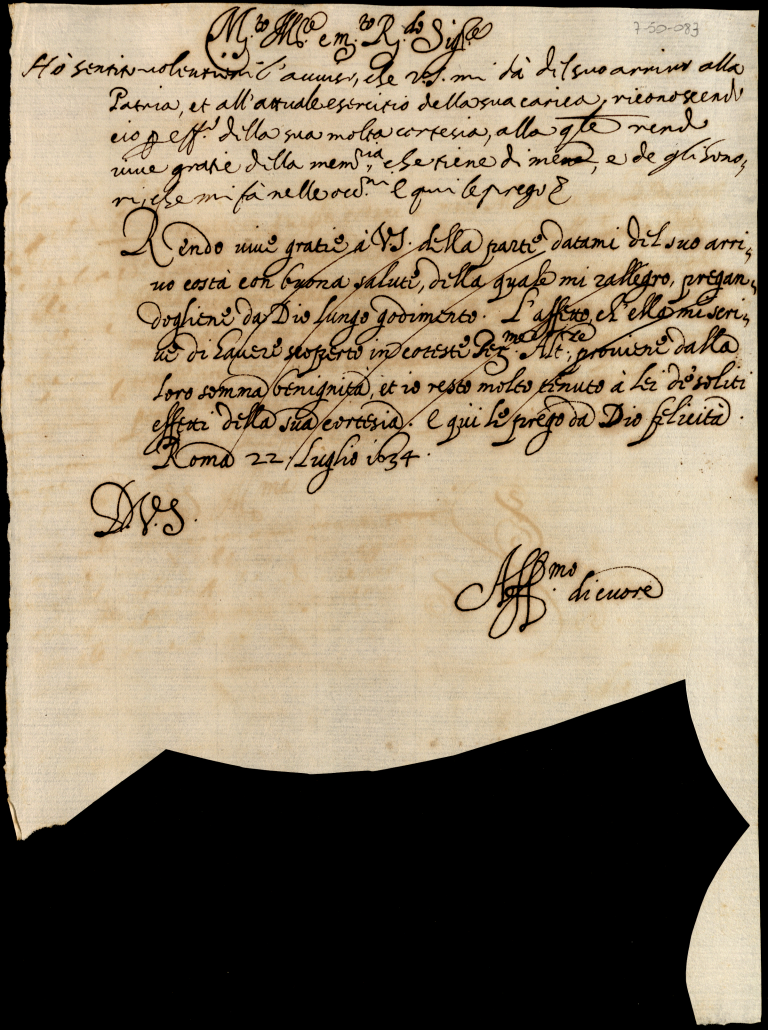 7-50-083
M.to Ill.re e m.to R.do Sig.re
Hò sentito volentieri l'auuiso, che V.S. mi dà del suo arriuo alla
Patria, et all'attuale esercitio della sua carica, riconoscendo
ciò p eff.o della sua molta cortesia, alla qle rendo
viue gratie della mem.ria, che tiene di me, e de gli hono,
ri, che mi fà nelle occ.ni E qui le prego
Rendo viue gratie à V.S. della parte datami del suo arri,
uo costà con buona salute, della quale mi rallegro, pregan,
dogliene da Dio lungo godimento. L'affetto, ch'ella mi scri,
ue di hauere scoperto in coteste Ser.me Alt.ze, prouiene dalla
loro somma benignità, et io resto molto tenuto à lei de soliti
effetti della sua cortesia. E qui le prego da Dio felicità.
Roma 22. Luglio 1634.
D.V.S.
Aff.mo di cuore